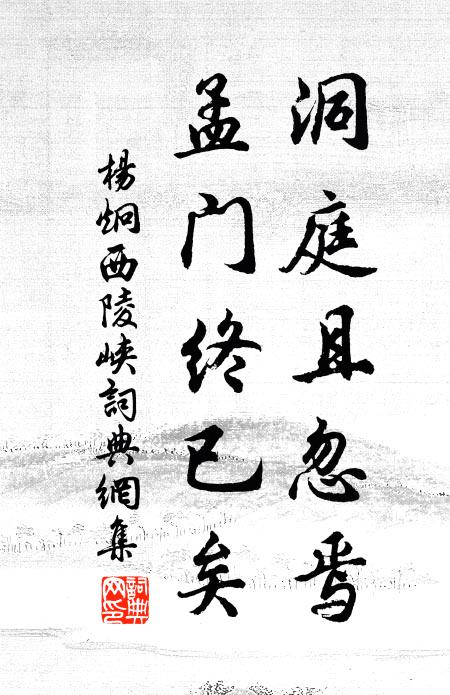 洞庭且忽焉
孟门终已矣
楊炯西陵峡詞典網集
詞典网印